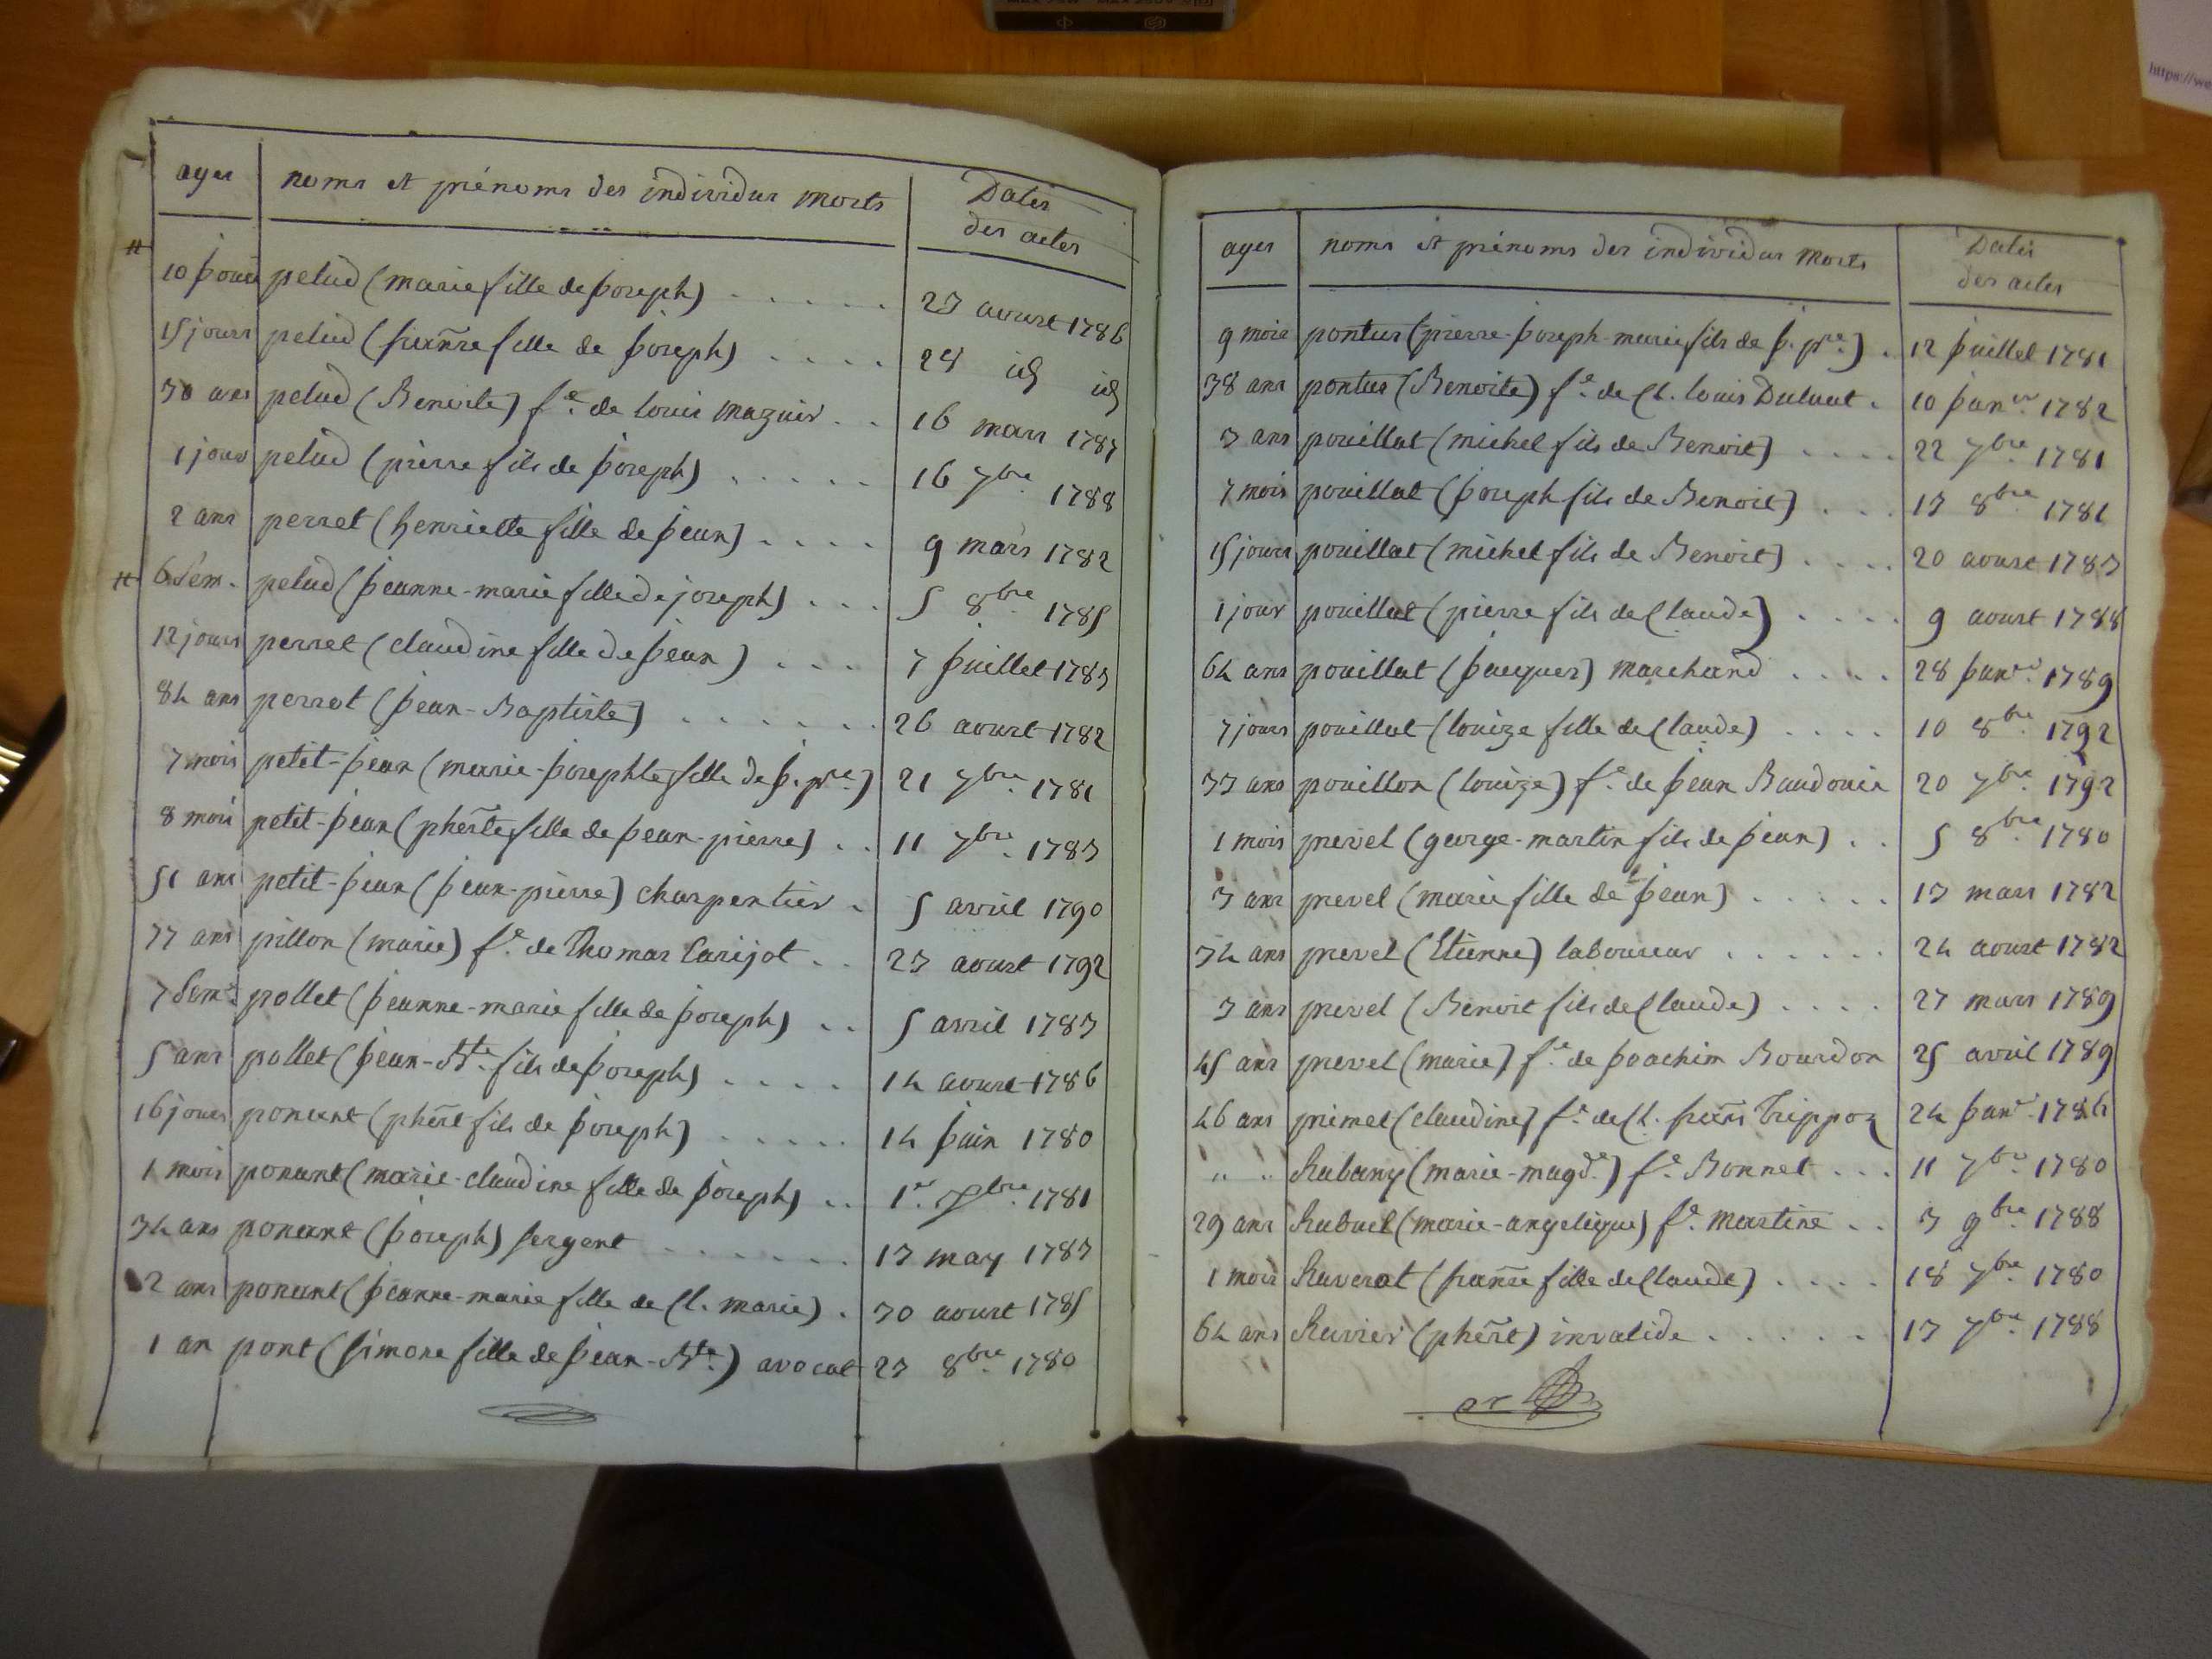 ages noms et prénoms des individus morts Dates
des actes
10 jours pelud (marie fille de joseph) ...... 23 aoust 1786
15 jours pelud (franse fille de joseph) .... 24 id id
30 ans pelud (Benoite) fe. de louis maznir .. 16 mars 1787
1 jour pelud (pierre fils de joseph) ..... 16 7bre. 1788
2 ans perret (henriette fille de jean) .... 9 mars 1782
6 Sem. pelud (jeanne-marie fille de joseph) ... 5 8bre. 1785
12 jours perret (claudine fille de jean) ... 7 juillet 1783
84 ans perrot (jean-Baptiste) ...... 26 aoust 1782
7 mois petit-jean (marie-josephte fille de j. pre.) 21 7bre. 1781
8 mois petit-jean (pherte fille de jean-pierre) .. 11 7bre. 1783
51 ans petit-jean (jean-pierre) charpentier . 5 avril 1790
77 ans pillon (marie) fe. de Thomas Carijot .. 23 aoust 1792
7 Sem. pollet (jeanne-marie fille de joseph) .. 5 avril 1783
5 ans pollet (jean-Bte. fils de joseph) .... 14 aoust 1786
16 jours ponent (phert fils de joseph) ..... 14 juin 1780
1 mois ponent (marie-claudine fille de joseph) .. 1er. 1781
34 ans ponent (joseph) sergent ...... 13 may 1783
2 ans ponent (jeanne-marie fille de Cl. marie) . 30 aoust 1785
1 an pont (simone fille de jean-Bte.) avocat 23 8bre. 1780
ages noms et prénoms des individus morts Dates
des actes
9 mois pontus (pierre-joseph-marie fils de j. pre.) . 12 juillet 1781
38 ans pontus (Benoite) fe. de Cl. louis Duluat . 10 janer. 1782
3 ans pouillat (michel fils de Benoit) .... 22 7bre. 1781
7 mois pouillat (joseph fils de Benoit) ... 13 8bre. 1781
15 jours pouillat (michel fils de Benoit) .... 20 aoust 1783
1 jour pouillat (pierre fils de Claude) .... 9 aoust 1788
64 ans pouillat (jacques) marchand .... 28 janer. 1789
7 jours pouillat (louize fille de Claude) .... 10 8bre. 1792
33 ans pouillon (louize) fe. de jean Baudouin 20 7bre. 1792
1 mois prevel (george-martin fils de jean) .. 5 8bre. 1780
3 ans prevel (marie fille de jean) ..... 13 mars 1782
34 ans prevel (Etienne) laboureur ...... 24 aoust 1782
3 ans prevel (Benoit fils de Claude) .... 27 mars 1789
45 ans prevel (marie) fe. de joachim Bourdon 25 avril 1789
46 ans primet (claudine) fe. de Cl. frans Trippoz 24 janer. 1786
" " Rabany (marie-magde.) fe. Bonnet ... 11 7bre. 1780
29 ans Rabuel (marie-angelique) fe. martine .. 3 9bre. 1788
1 mois Raverat (franse fille de Claude) .... 18 7bre. 1780
64 ans Ravier (phert) invalide ..... 13 7bre. 1788
https://we